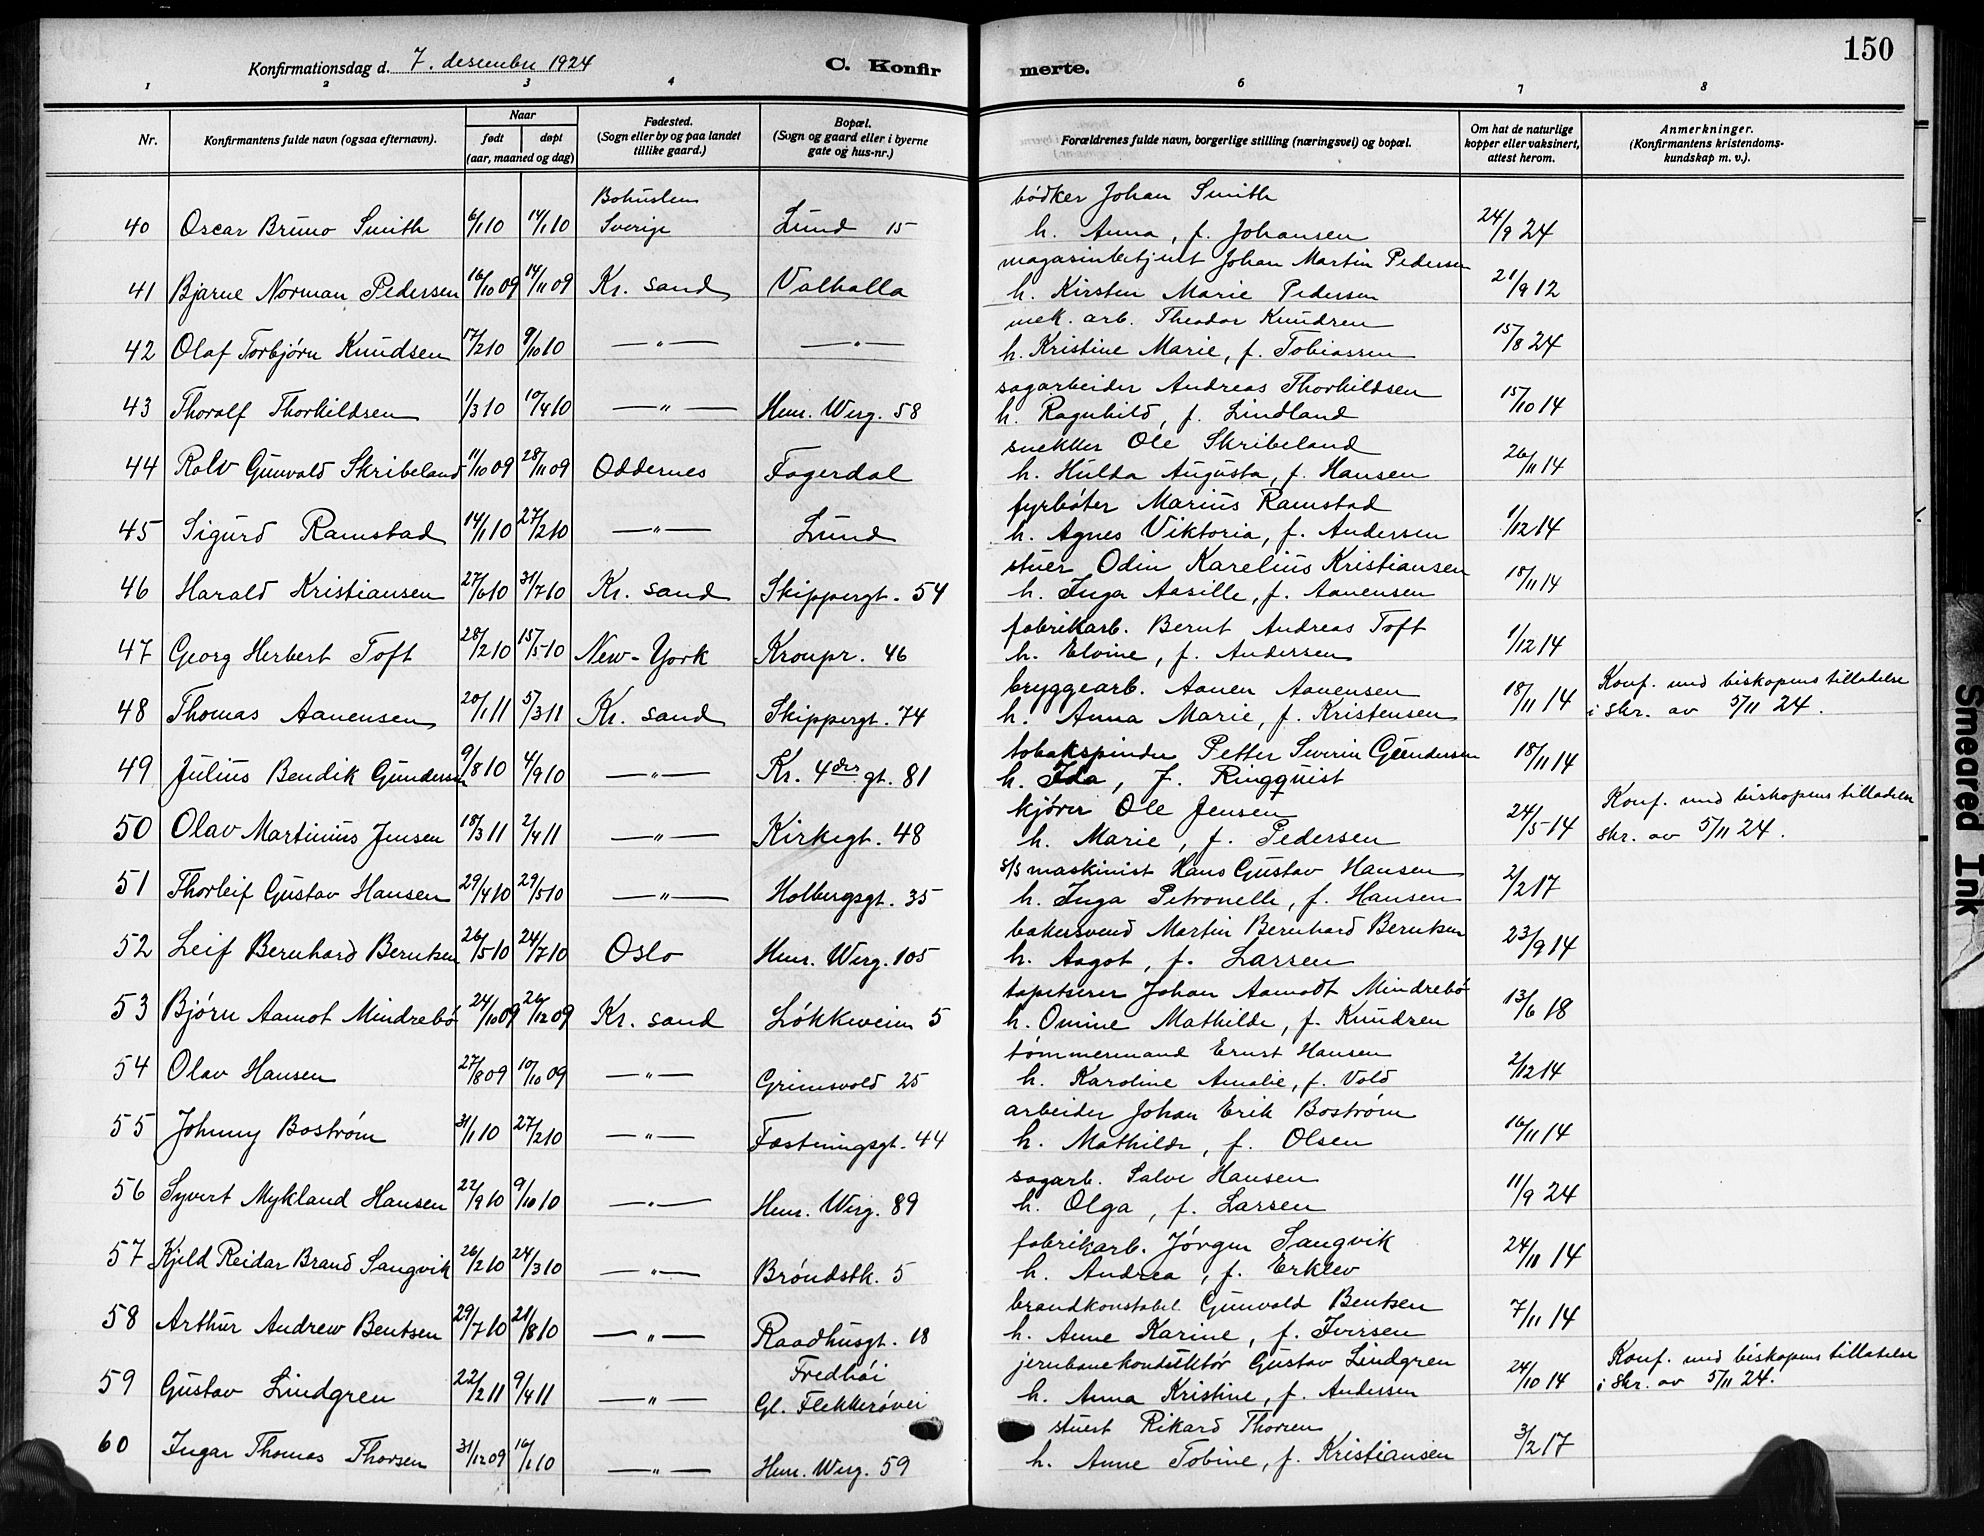 150
Konfirmationsdag d. 7. desember 1924 C. Konfirmerte.
1 2 3 4 5 6 7 8
Nr. Konfirmantens fulde navn (ogsaa efternavn). Naar født døpt (aar, maaned og dag) Fødested. (Sogn eller by og paa landet tillike gaard.) Bopæl. (Sogn og gaard eller i byerne gate og hus-nr.) Forældrenes fulde navn, borgerlige stilling (næringsvei) og bopæl. Om hat de naturlige kopper eller vaksinert, attest herom. Anmerkninger. (Konfirmantens kristendomskundskap m. v.).
Bohuslen bødker Johan Smith
40 Oscar Bruno Smith 6/1 10 14/1 10 Sverige Lund 15 h. Anna, f. Johansen 24/9 24
magasinbetjent Johan Martin Pedersen
41 Bjarne Norman Pedersen 16/10 09 14/11 09 Kr. sand Valhalla h. Kirsten Marie Pedersen 21/9 12
mek. arb. Theodor Knudsen
42 Olaf Torbjørn Knudsen 17/2 10 9/10 10 —"— —"— h. Kristine Marie, f. Tobiassen 15/8 24
sagarbeider Andreas Thorkildsen
43 Thoralf Thorkildsen 1/3 10 10/4 10 —"— Henr. Werg. 58 h. Ragnhild, f. Lindland 15/10 14
snekker Ole Skribeland
44 Rolv Gunvald Skribeland 11/10 09 28/11 09 Oddernes Fagerdal h. Hulda Augusta, f. Hansen 26/11 14
fyrbøter Marius Ramstad
45 Sigurd Ramstad 14/1 10 27/2 10 —"— Lund h. Agnes Viktoria, f. Andersen 1/12 14
stuer Odin Karelius Kristiansen
46 Harald Kristiansen 27/6 10 31/7 10 Kr. sand Skippergt. 54 h. Inga Aasille, f. Aanensen 18/11 14
fabrikarb. Bernt Andreas Toft
47 Georg Herbert Toft 28/2 10 15/5 10 New-York Kronpr. 46 h. Elvine, f. Andersen 1/12 14
bryggearb. Aanen Aanensen Konf. med biskopens tilladelse
48 Thomas Aanensen 20/1 11 5/3 11 Kr. sand Skippergt. 74 h. Anna Marie, f. Kristensen 18/11 14 i skr. av 5/11 24.
tobakspinder Petter Severin Gundersen
49 Julius Bendik Gundersen 9/8 10 4/9 10 —"— Kr. 4des gt. 81 h. Ida, f. Ringquist 18/11 14
kjører Ole Jensen Konf. med biskopens tilladelse
50 Olav Martinius Jensen 18/3 11 2/4 11 —"— Kirkegt. 48 h. Marie, f. Pedersen 24/5 14 skr. av 5/11 24.
s/s maskinist Hans Gustav Hansen
51 Thorleif Gustav Hansen 29/4 10 29/5 10 —"— Holbergsgt. 35 h. Inga Petronelle, f. Hansen 2/2 17
bakersvend Martin Bernhard Berntsen
52 Leif Bernhard Berntsen 26/5 10 24/7 10 Oslo Henr. Werg. 105 h. Aagot, f. Larsen 23/9 14
tapetserer Johan Aamodt Mindrebø
53 Bjørn Aamot Mindrebø 24/10 09 26/12 09 Kr. sand Løkkeveien 5 h. Omine Mathilde, f. Knudsen 13/6 18
tømmermand Ernst Hansen
54 Olav Hansen 27/8 09 10/10 09 —"— Grimsvold 25 h. Karoline Amalie, f. Vold 2/12 14
arbeider Johan Erik Bostrøm
55 Johnny Bostrøm 31/1 10 27/2 10 —"— Festningsgt. 44 h. Mathilde, f. Olsen 16/11 14
sagarb. Salve Hansen
56 Syvert Mykland Hansen 22/9 10 9/10 10 —"— Henr. Werg. 89 h. Olga, f. Larsen 11/9 24
fabrikarb. Jørgen Sangvik
57 Kjeld Reidar Brand Sangvik 26/2 10 24/3 10 —"— Brøndstk. 5 h. Andrea, f. Erklev 24/11 14
brandkonstabel Gunvald Bentsen
58 Arthur Andrew Bentsen 29/7 10 21/8 10 —"— Raadhusgt. 18 h. Anne Karine, f. Iversen 7/11 14
Fredhøi jernbanekonduktør Gustav Lindgren Konf. med biskopens tilladelse
59 Gustav Lindgren 22/2 11 9/4 11 —"— Gl. Flekkerøvei h. Anna Kristine, f. Andersen 24/10 14 i skr. av 5/11 24.
stuert Rikard Thorsen
60 Ingar Thomas Thorsen 31/12 09 16/1 10 —"— Henr. Werg. 59 h. Anne Tobine, f. Kristiansen 3/2 17
Smeared Ink